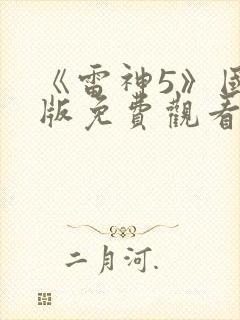 《雷神5》国
版免費觀看
二月河.